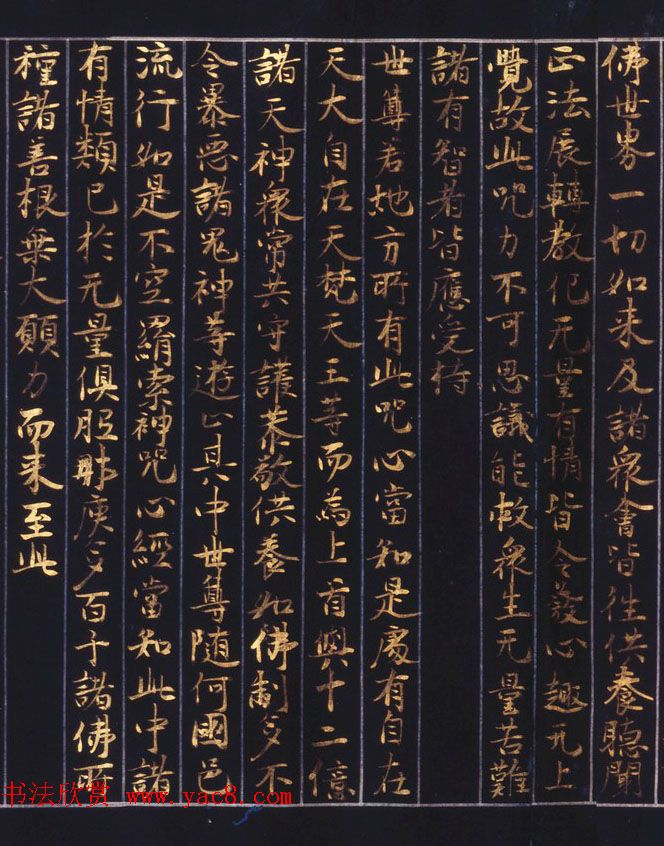 佛世界一切如来及諸衆會皆往供養聽聞
正法展轉教化无量有情皆令發心趣无上
覺故此咒力不可思議能救衆生无量苦難
諸有智者皆應受持
世尊若地方所有此咒心當知是處有自在
天大自在天梵天王等而為上首與十二億
諸天神衆常共守護恭敬供養如佛制多不
令暴惡諸鬼神等遊止其中世尊隨何國邑
流行如是不空羂索神咒心經當知此中諸
有情類已於无量俱胝那庾多百千諸佛所
種諸善根乘大願力而来至此
书法欣赏 www.yac8.com